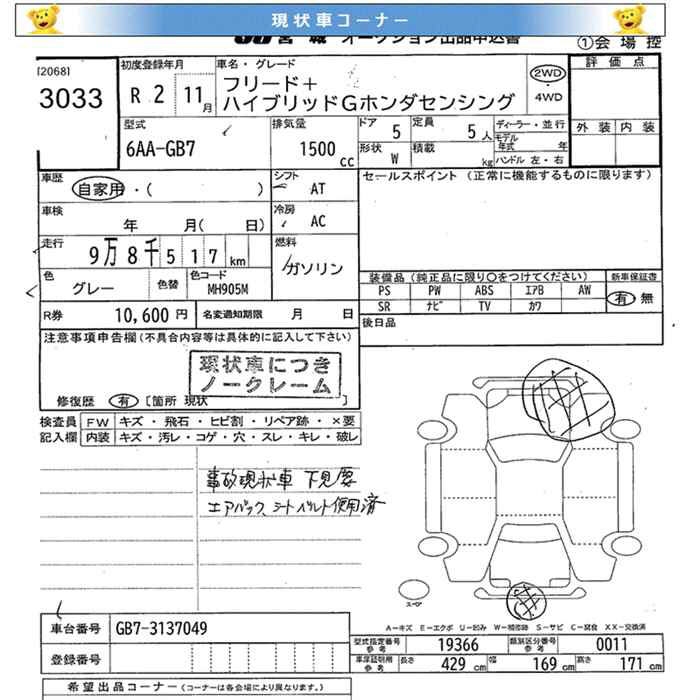 現状車コーナー
オークション出品申込書
①会場控
[2068]
3033
初度登録年月
R 2 11月
車名・グレード
フリード＋
ハイブリッドGホンダセンシング
2WD
・
4WD
評価点
外装 内装
型式
6AA-GB7
排気量
1500cc
ドア 5
定員 5人
形状 W
積載 kg
ディーラー・並行
モデル年式 年
ハンドル 左・右
車歴
自家用・( )
シフト AT
セールスポイント (正常に機能するものに限ります)
車検
年 月( 日)
冷房 AC
走行
9万8千517km
燃料
ガソリン
色
グレー
色替
色コード
MH905M
装備品 (純正品に限り○をつけてください)
新車保証書
PS PW ABS エアB AW
有 無
SR ナビ TV カワ
R券 10,600円
名変通知期限 月 日
後日品
注意事項申告欄 (不具合内容等は具体的に記入して下さい)
現状車につき
ノークレーム
修復歴 有 [箇所 現状 ]
検査員
記入欄
FW キズ・飛石・ヒビ割・リペア跡・×要
内装 キズ・汚レ・コゲ・穴・スレ・キレ・破レ
事故現状車 下見要
エアバック、シートベルト使用済
スペア
A－キズ E－エクボ U－凹み W－補修跡 S－サビ C－腐食 XX－交換済
車台番号 GB7-3137049
登録番号
型式指定番号 参考 19366
類別区分番号 参考 0011
車庫証明用 参考 長さ 429cm 幅 169cm 高さ 171cm
希望出品コーナー (コーナーは各会場により異なります)